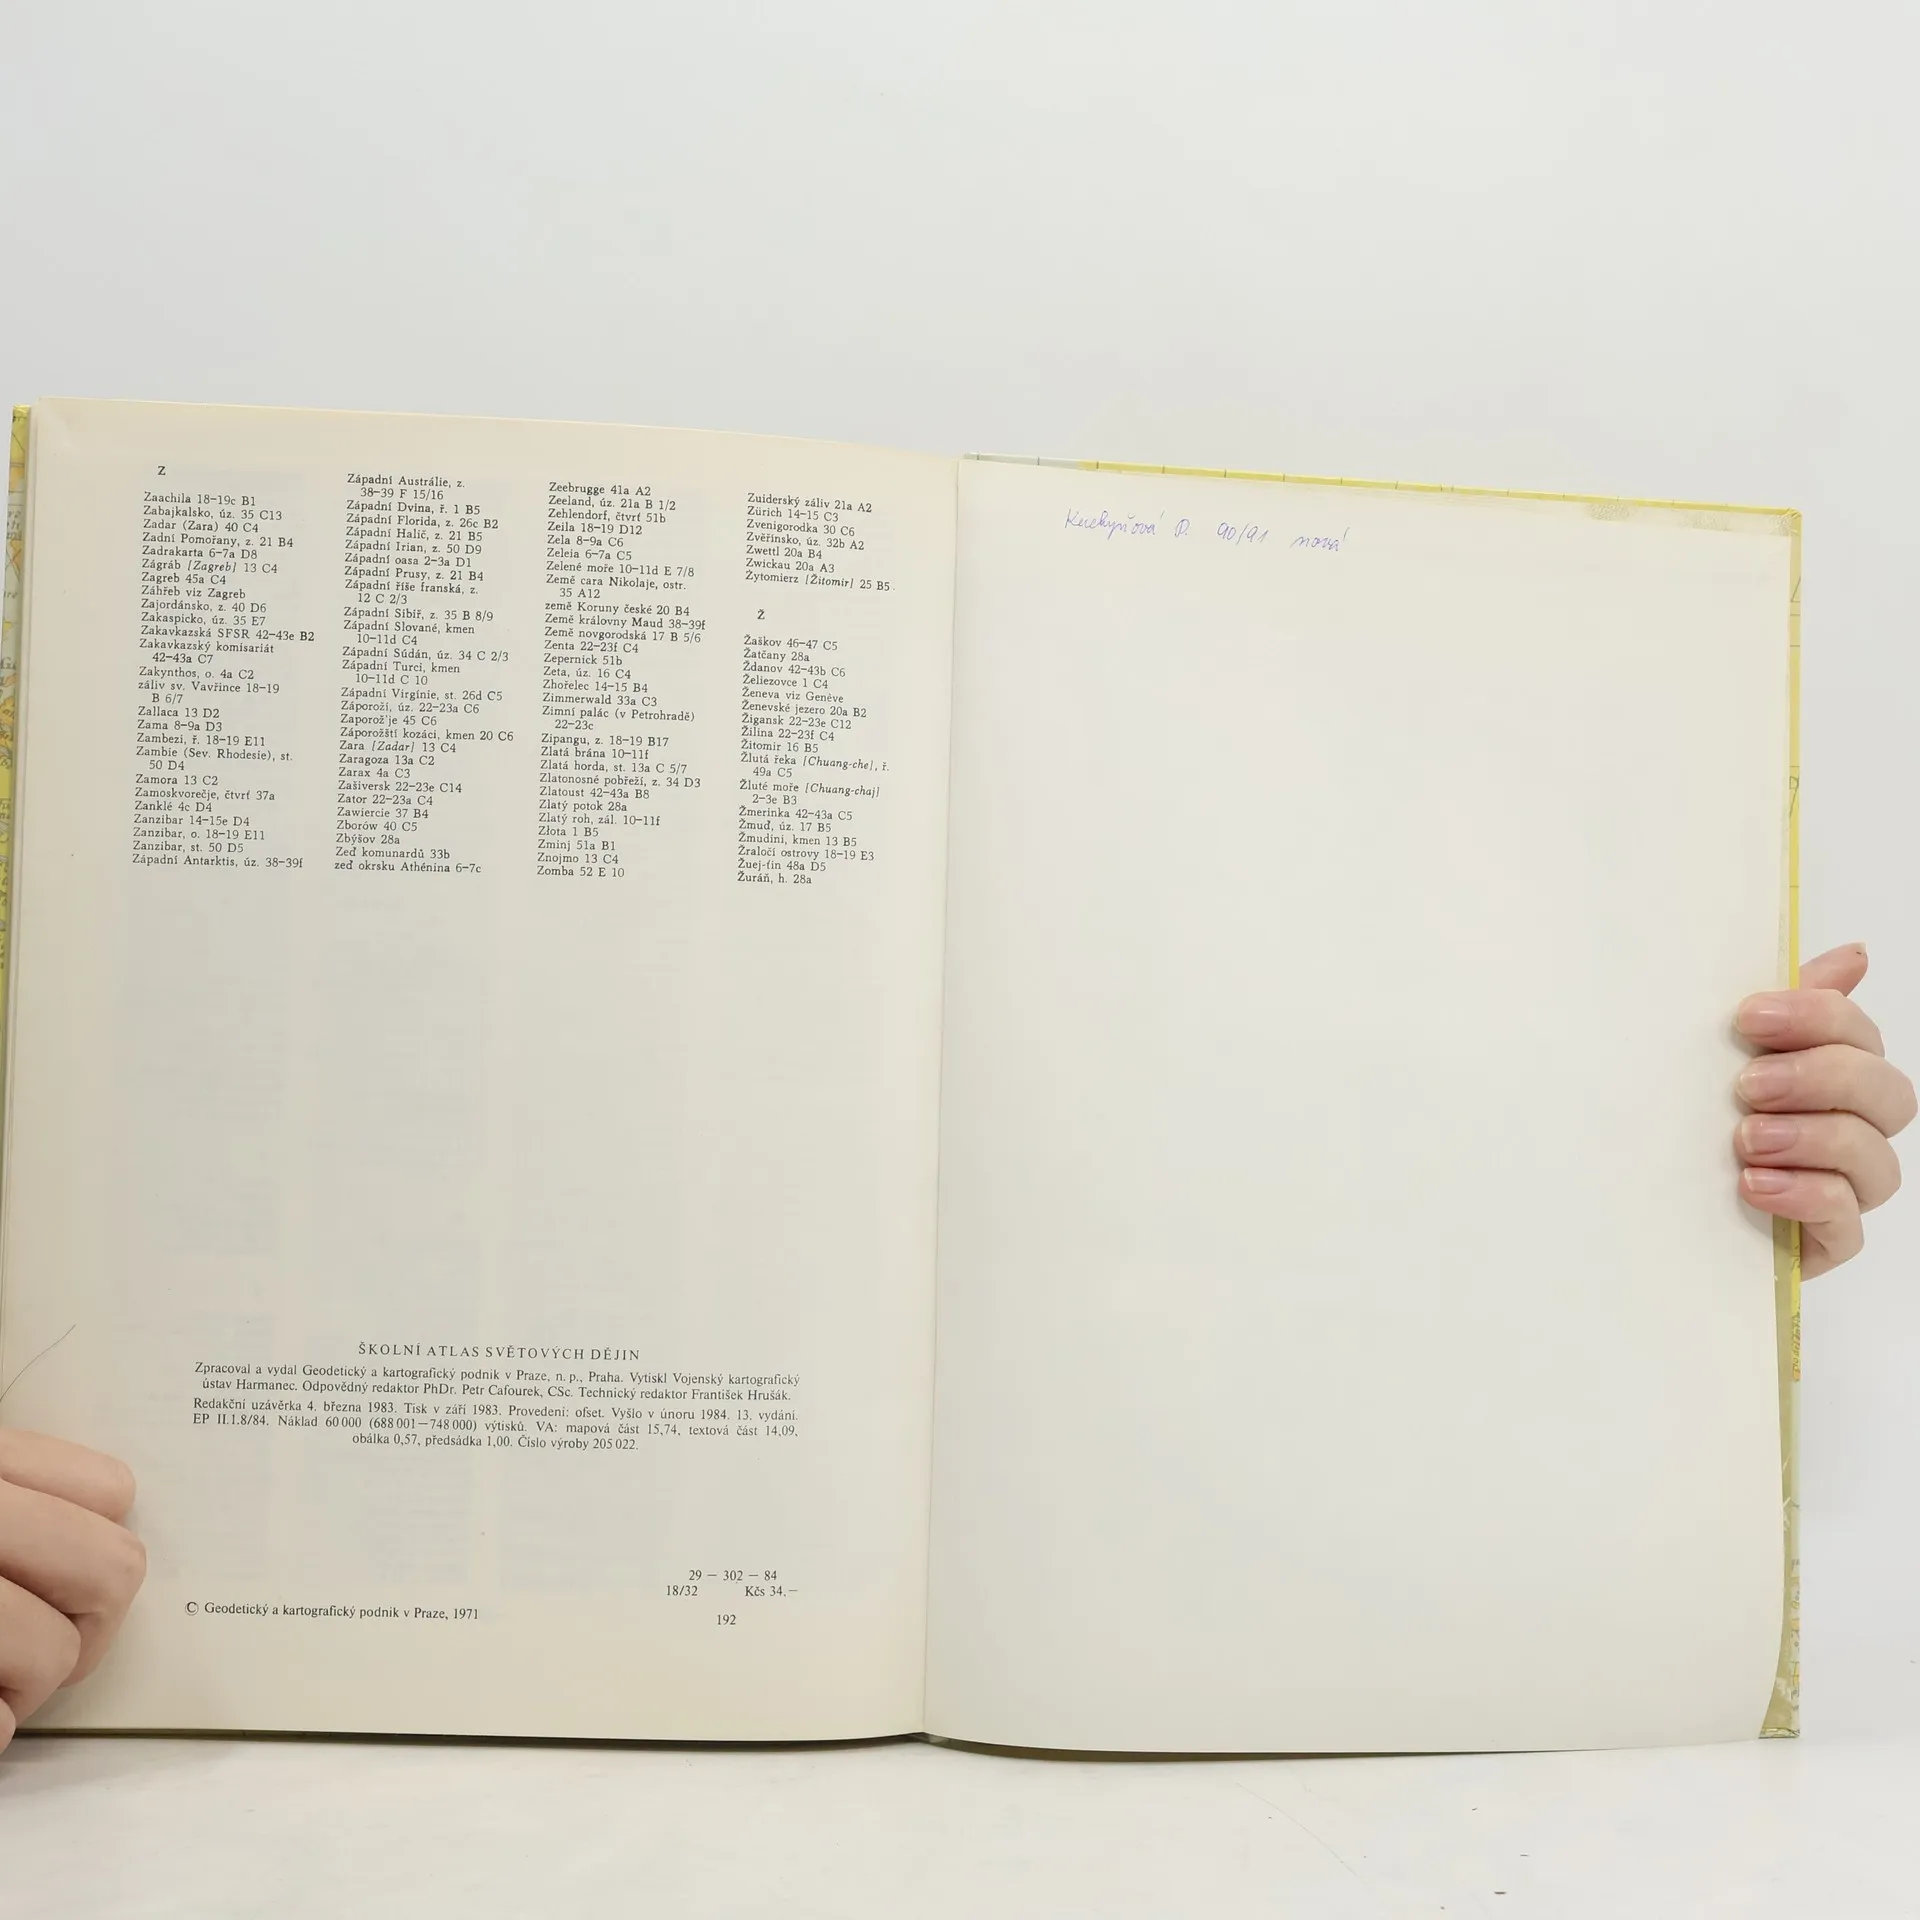 Z
Zaachila 18–19c B1
Zabajkalsko, úz. 35 C13
Zadar (Zara) 40 C4
Zadní Pomořany, z. 21 B4
Zadrakarta 6–7a D8
Zágráb [Zagreb] 13 C4
Zagreb 45a C4
Záhřeb viz Zagreb
Zajordánsko, z. 40 D6
Zakaspicko, úz. 35 E7
Zakavkazská SFSR 42–43e B2
Zakavkazský komisariát
42–43a C7
Zakynthos, o. 4a C2
záliv sv. Vavřince 18–19
B 6/7
Zallaca 13 D2
Zama 8–9a D3
Zambezi, ř. 18–19 E11
Zambie (Sev. Rhodesie), st.
50 D4
Zamora 13 C2
Zamoskvorečje, čtvrť 37a
Zanklé 4c D4
Zanzibar 14–15e D4
Zanzibar, o. 18–19 E11
Zanzibar, st. 50 D5
Západní Antarktis, úz. 38–39f
Západní Austrálie, z.
38–39 F 15/16
Západní Dvina, ř. 1 B5
Západní Florida, z. 26c B2
Západní Halič, z. 21 B5
Západní Irian, z. 50 D9
Západní oasa 2–3a D1
Západní Prusy, z. 21 B4
Západní říše franská, z.
12 C 2/3
Západní Sibiř, z. 35 B 8/9
Západní Slované, kmen
10–11d C4
Západní Súdán, úz. 34 C 2/3
Západní Turci, kmen
10–11d C 10
Západní Virgínie, st. 26d C5
Záporoží, úz. 22–23a C6
Zaporož'je 45 C6
Záporožští kozáci, kmen 20 C6
Zara [Zadar] 13 C4
Zaragoza 13a C2
Zarax 4a C3
Zašiversk 22–23e C14
Zator 22–23a C4
Zawiercie 37 B4
Zborów 40 C5
Zbýšov 28a
Zeď komunardů 33b
zeď okrsku Athénina 6–7c
Zeebrugge 41a A2
Zeeland, úz. 21a B 1/2
Zehlendorf, čtvrť 51b
Zeila 18–19 D12
Zela 8–9a C6
Zeleia 6–7a C5
Zelené moře 10–11d E 7/8
Země cara Nikolaje, ostr.
35 A12
země Koruny české 20 B4
Země královny Maud 38–39f
Země novgorodská 17 B 5/6
Zenta 22–23f C4
Zepernick 51b
Zeta, úz. 16 C4
Zhořelec 14–15 B4
Zimmerwald 33a C3
Zimní palác (v Petrohradě)
22–23c
Zipangu, z. 18–19 B17
Zlatá brána 10–11f
Zlatá horda, st. 13a C 5/7
Zlatonosné pobřeží, z. 34 D3
Zlatoust 42–43a B8
Zlatý potok 28a
Zlatý roh, zál. 10–11f
Złota 1 B5
Zminj 51a B1
Znojmo 13 C4
Zomba 52 E 10
Zuiderský záliv 21a A2
Zürich 14–15 C3
Zvenigorodka 30 C6
Zvěřínsko, úz. 32b A2
Zwettl 20a B4
Zwickau 20a A3
Żytomierz [Žitomir] 25 B5
Ž
Žaškov 46–47 C5
Žatčany 28a
Ždanov 42–43b C6
Želiezovce 1 C4
Ženeva viz Genève
Ženevské jezero 20a B2
Žigansk 22–23e C12
Žilina 22–23f C4
Žitomir 16 B5
Žlutá řeka [Chuang-che], ř.
49a C5
Žluté moře [Chuang-chaj]
2–3e B3
Žmerinka 42–43a C5
Žmuď, úz. 17 B5
Žmudíni, kmen 13 B5
Žraločí ostrovy 18–19 E3
Žuej-ťin 48a D5
Žuráň, h. 28a
ŠKOLNÍ ATLAS SVĚTOVÝCH DĚJIN
Zpracoval a vydal Geodetický a kartografický podnik v Praze, n. p., Praha. Vytiskl Vojenský kartografický
ústav Harmanec. Odpovědný redaktor PhDr. Petr Cafourek, CSc. Technický redaktor František Hrušák.
Redakční uzávěrka 4. března 1983. Tisk v září 1983. Provedení: ofset. Vyšlo v únoru 1984. 13. vydání.
EP II.1.8/84. Náklad 60 000 (688 001—748 000) výtisků. VA: mapová část 15,74, textová část 14,09,
obálka 0,57, předsádka 1,00. Číslo výroby 205 022.
29 — 302 — 84
18/32 Kčs 34.—
© Geodetický a kartografický podnik v Praze, 1971
192
90/91 nová